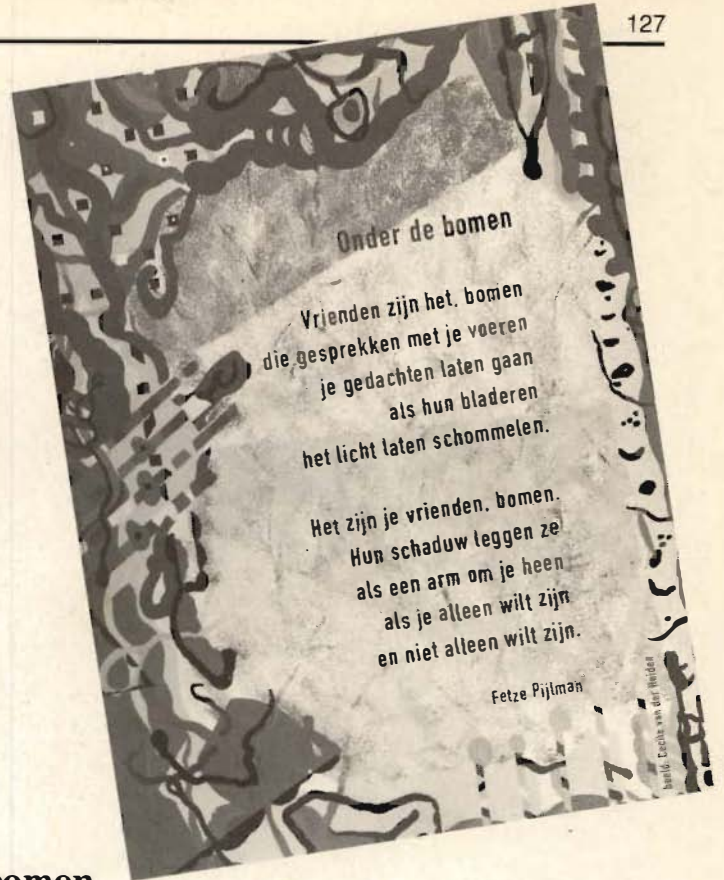 127
Onder de bomen
Vrienden zijn het, bomen
die gesprekken met je voeren
je gedachten laten gaan
als hun bladeren
het licht laten schommelen.
Het zijn je vrienden, bomen.
Hun schaduw leggen ze
als een arm om je heen
als je alleen wilt zijn
en niet alleen wilt zijn.
Fetze Pijlman
beeld: Cecile van der Heiden
7